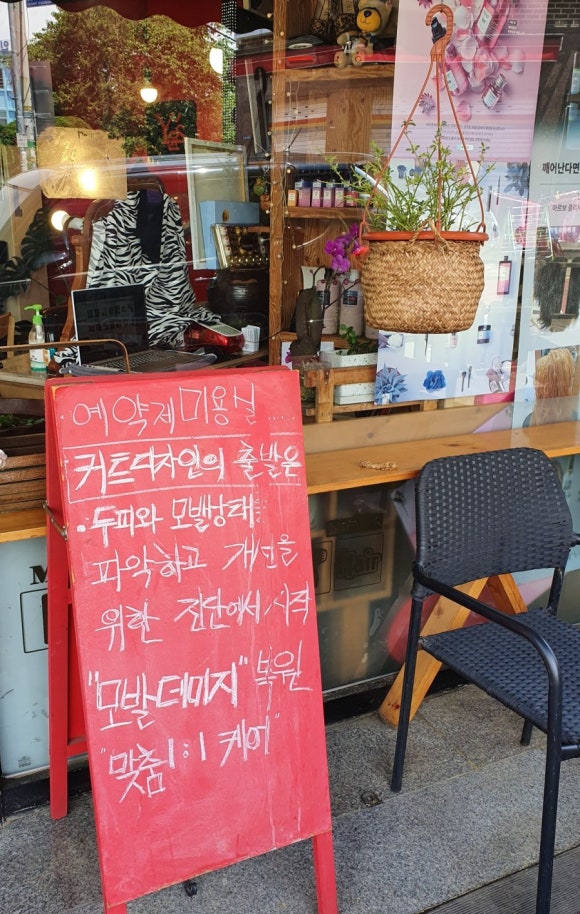 예약제 미용실....
커트디자인의 출발은
• 두피와 모발상태
파악하고 개선을
위한 진단에서 시작
"모발데미지" 복원
"맞춤 1:1 케어"
깨어난다면